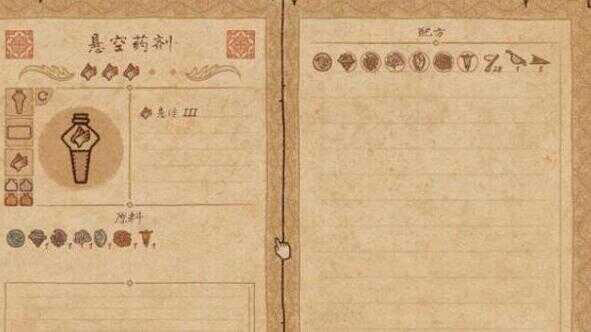 悬空药剂
III
原料
配方